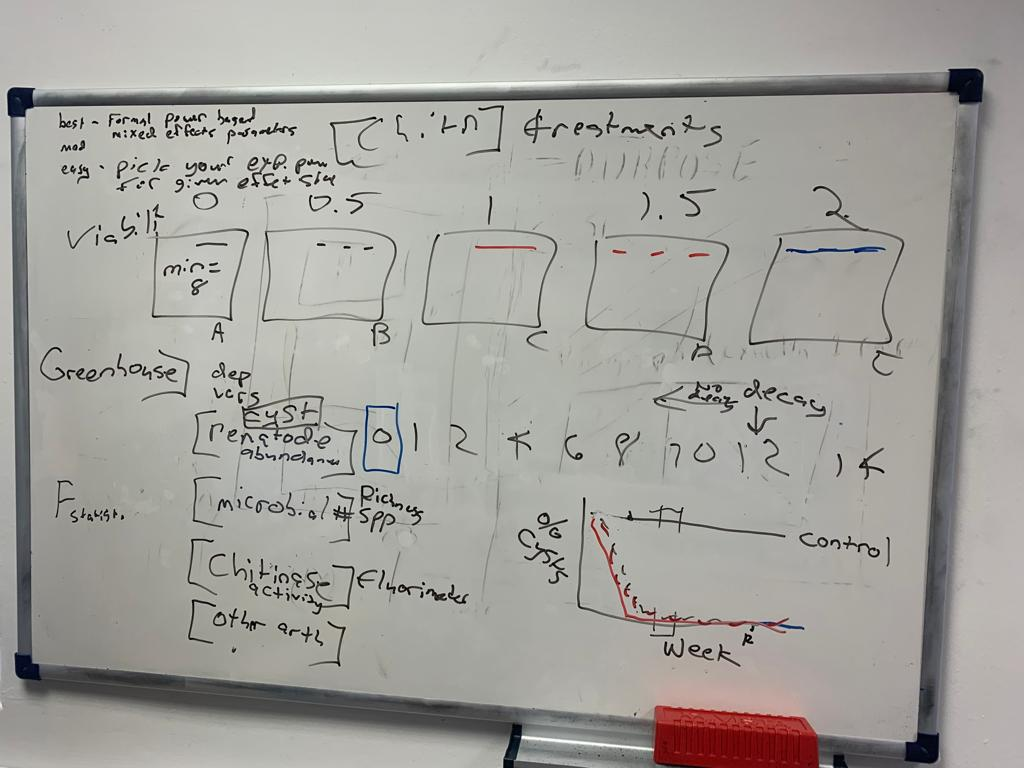 best - Formal power based
mixed effects parameters
mod
easy - pick your exp. pow
for given effect size
[Chitin] treatments
0 0.5 1 1.5 2
Viabilit
min=
8
A B C D E
Greenhouse]
dep
vars
cyst
[nematode
abundance]
0 1 2 4 6 8 10 12 14
no
decay
decay
F statist.
[microbial] # Richness
Spp
[Chitinase
activity] Fluorimeter
[other arth]
%
Cysts
control
Week